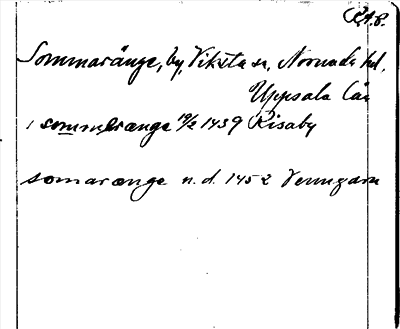 R.A.P.
Sommaränge, by, Viksta sn, Norunda hd,
Uppsala län
i sommerænge 10/2 1439 Risaby
somarænge n. d. 1452 Vermgarn